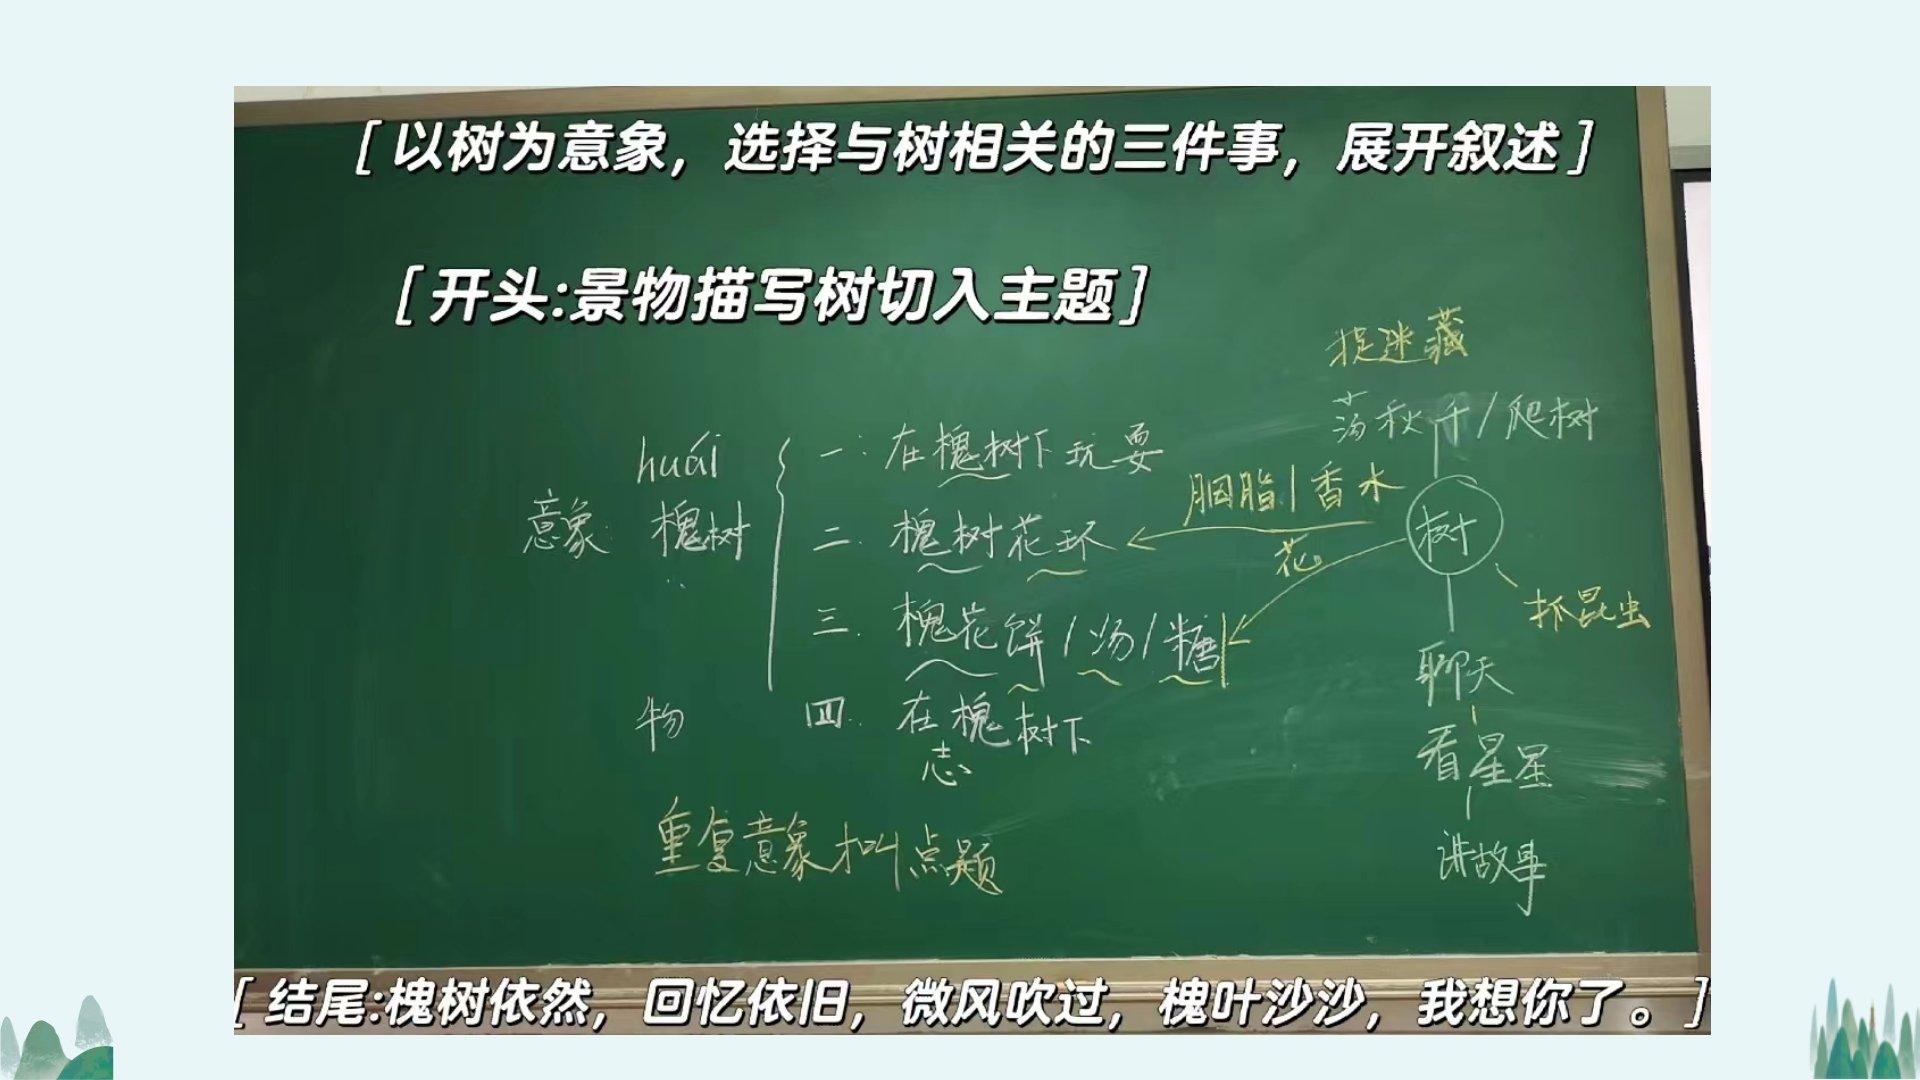 [以树为意象，选择与树相关的三件事，展开叙述]
[开头:景物描写树切入主题]
捉迷藏
荡秋千/爬树
huái
意象：槐树
一：在槐树下玩耍
二. 槐树花环
三. 槐花饼/汤/糖
胭脂/香水
花
树
抓昆虫
聊天
看星星
讲故事
物
四. 在槐树下
志
重复意象扣点题
[结尾:槐树依然，回忆依旧，微风吹过，槐叶沙沙，我想你了。]